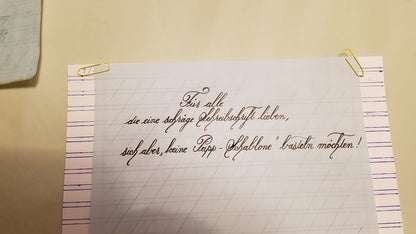 Für alle
die eine schräge Schreibschrift lieben,
sich aber, keine Papp-Schablone" basteln möchten!